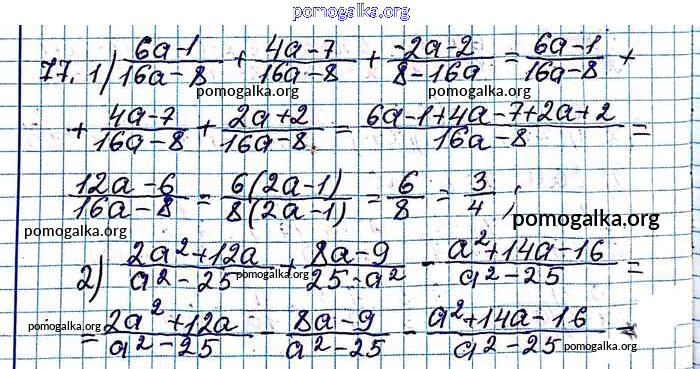 pomogalka.org
77. 1) (6a-1)/(16a-8) + (4a-7)/(16a-8) + (-2a-2)/(8-16a) = (6a-1)/(16a-8) +
pomogalka.org pomogalka.org
+ (4a-7)/(16a-8) + (2a+2)/(16a-8) = (6a-1+4a-7+2a+2)/(16a-8) =
(12a-6)/(16a-8) = 6(2a-1)/8(2a-1) = 6/8 = 3/4 ;
pomogalka.org
pomogalka.org
2) (2a²+12a)/(a²-25) + (8a-9)/(25-a²) - (a²+14a-16)/(a²-25) =
pomogalka.org
= (2a²+12a)/(a²-25) - (8a-9)/(a²-25) - (a²+14a-16)/(a²-25) =
pomogalka.org pomogalka.org pomogalka.org